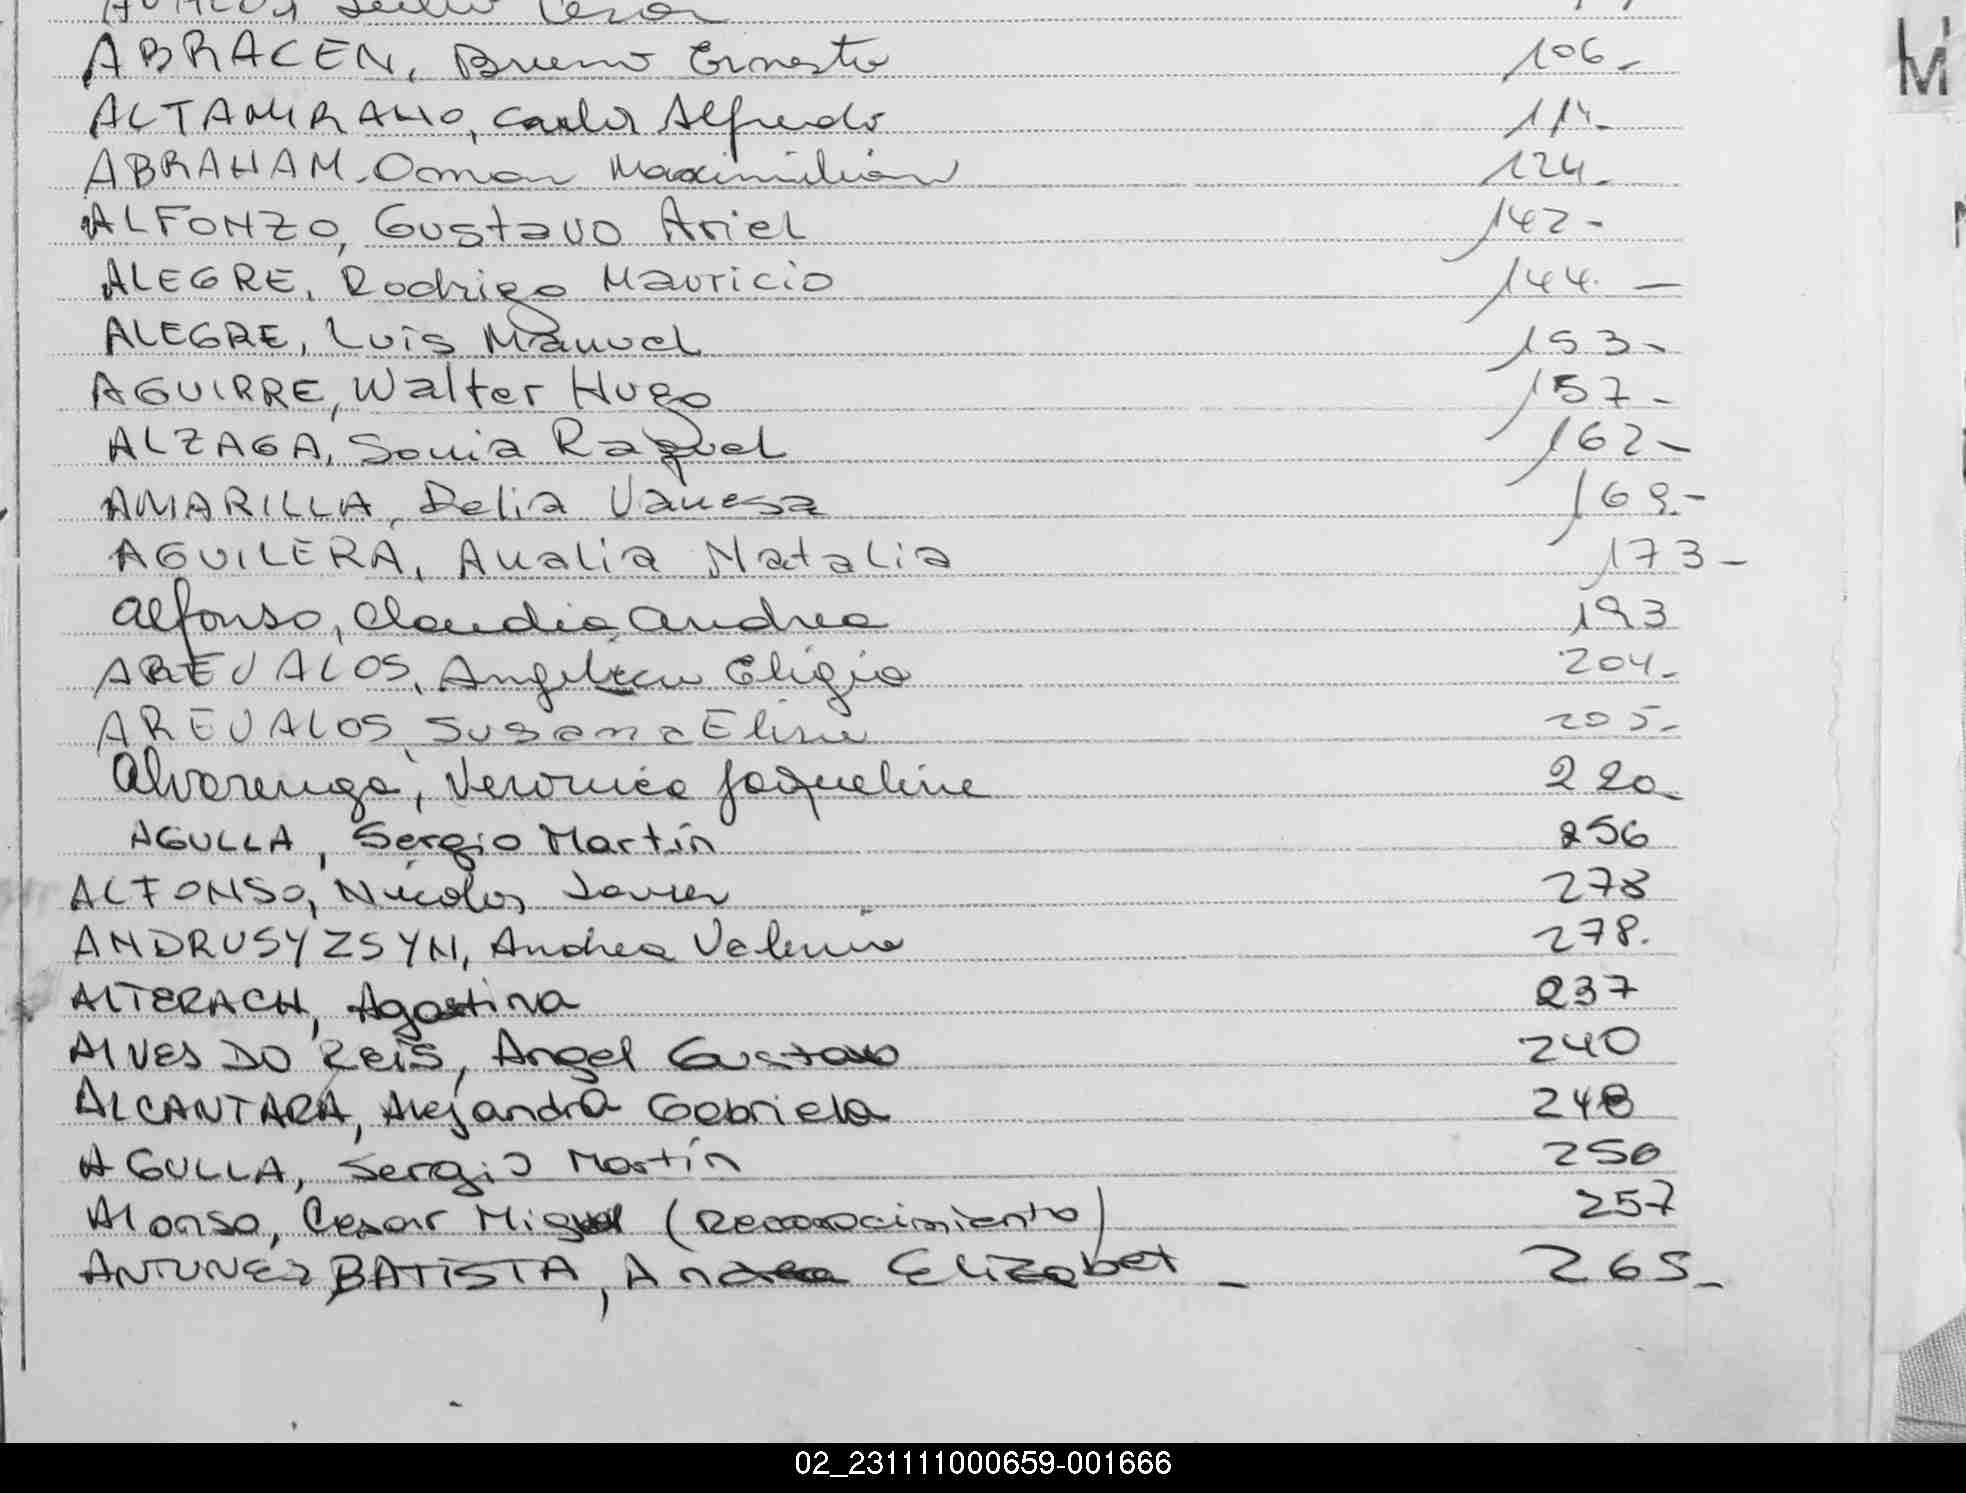 ABRACEN, Bruno Ernesto 106-
ALTAMIRANO, Carlos Alfredo 114-
ABRAHAM, Osmar Maximilian 124-
ALFONZO, Gustavo Ariel 142-
ALEGRE, Rodrigo Mauricio 144. —
ALEGRE, Luis Manuel 153-
AGUIRRE, Walter Hugo 157-
ALZAGA, Sonia Raquel 162-
AMARILLA, Delia Vanesa 169-
AGUILERA, Analia Natalia 173-
Alfonso, Claudia Andrea 193
AREVALOS, Eligio 204-
AREVALOS, Susana Elisa 205-
Alvarenga, Veronica Jaqueline 220-
AGULLA, Sergio Martín 256
ALFONSO, Nicolas Javier 278
ANDRUSYZSYN, Andrea Valeria 278.
ALTERACH, Agostina 237
ALVES DO REIS, Angel Gustavo 240
ALCANTARA, Alejandra Gabriela 248
AGULLA, Sergio Martín 250
Alonso, Cesar Miguel (Reconocimiento) 257
ANTUNEZ BATISTA, Andrea Elizabet - 265-
02_231111000659-001666